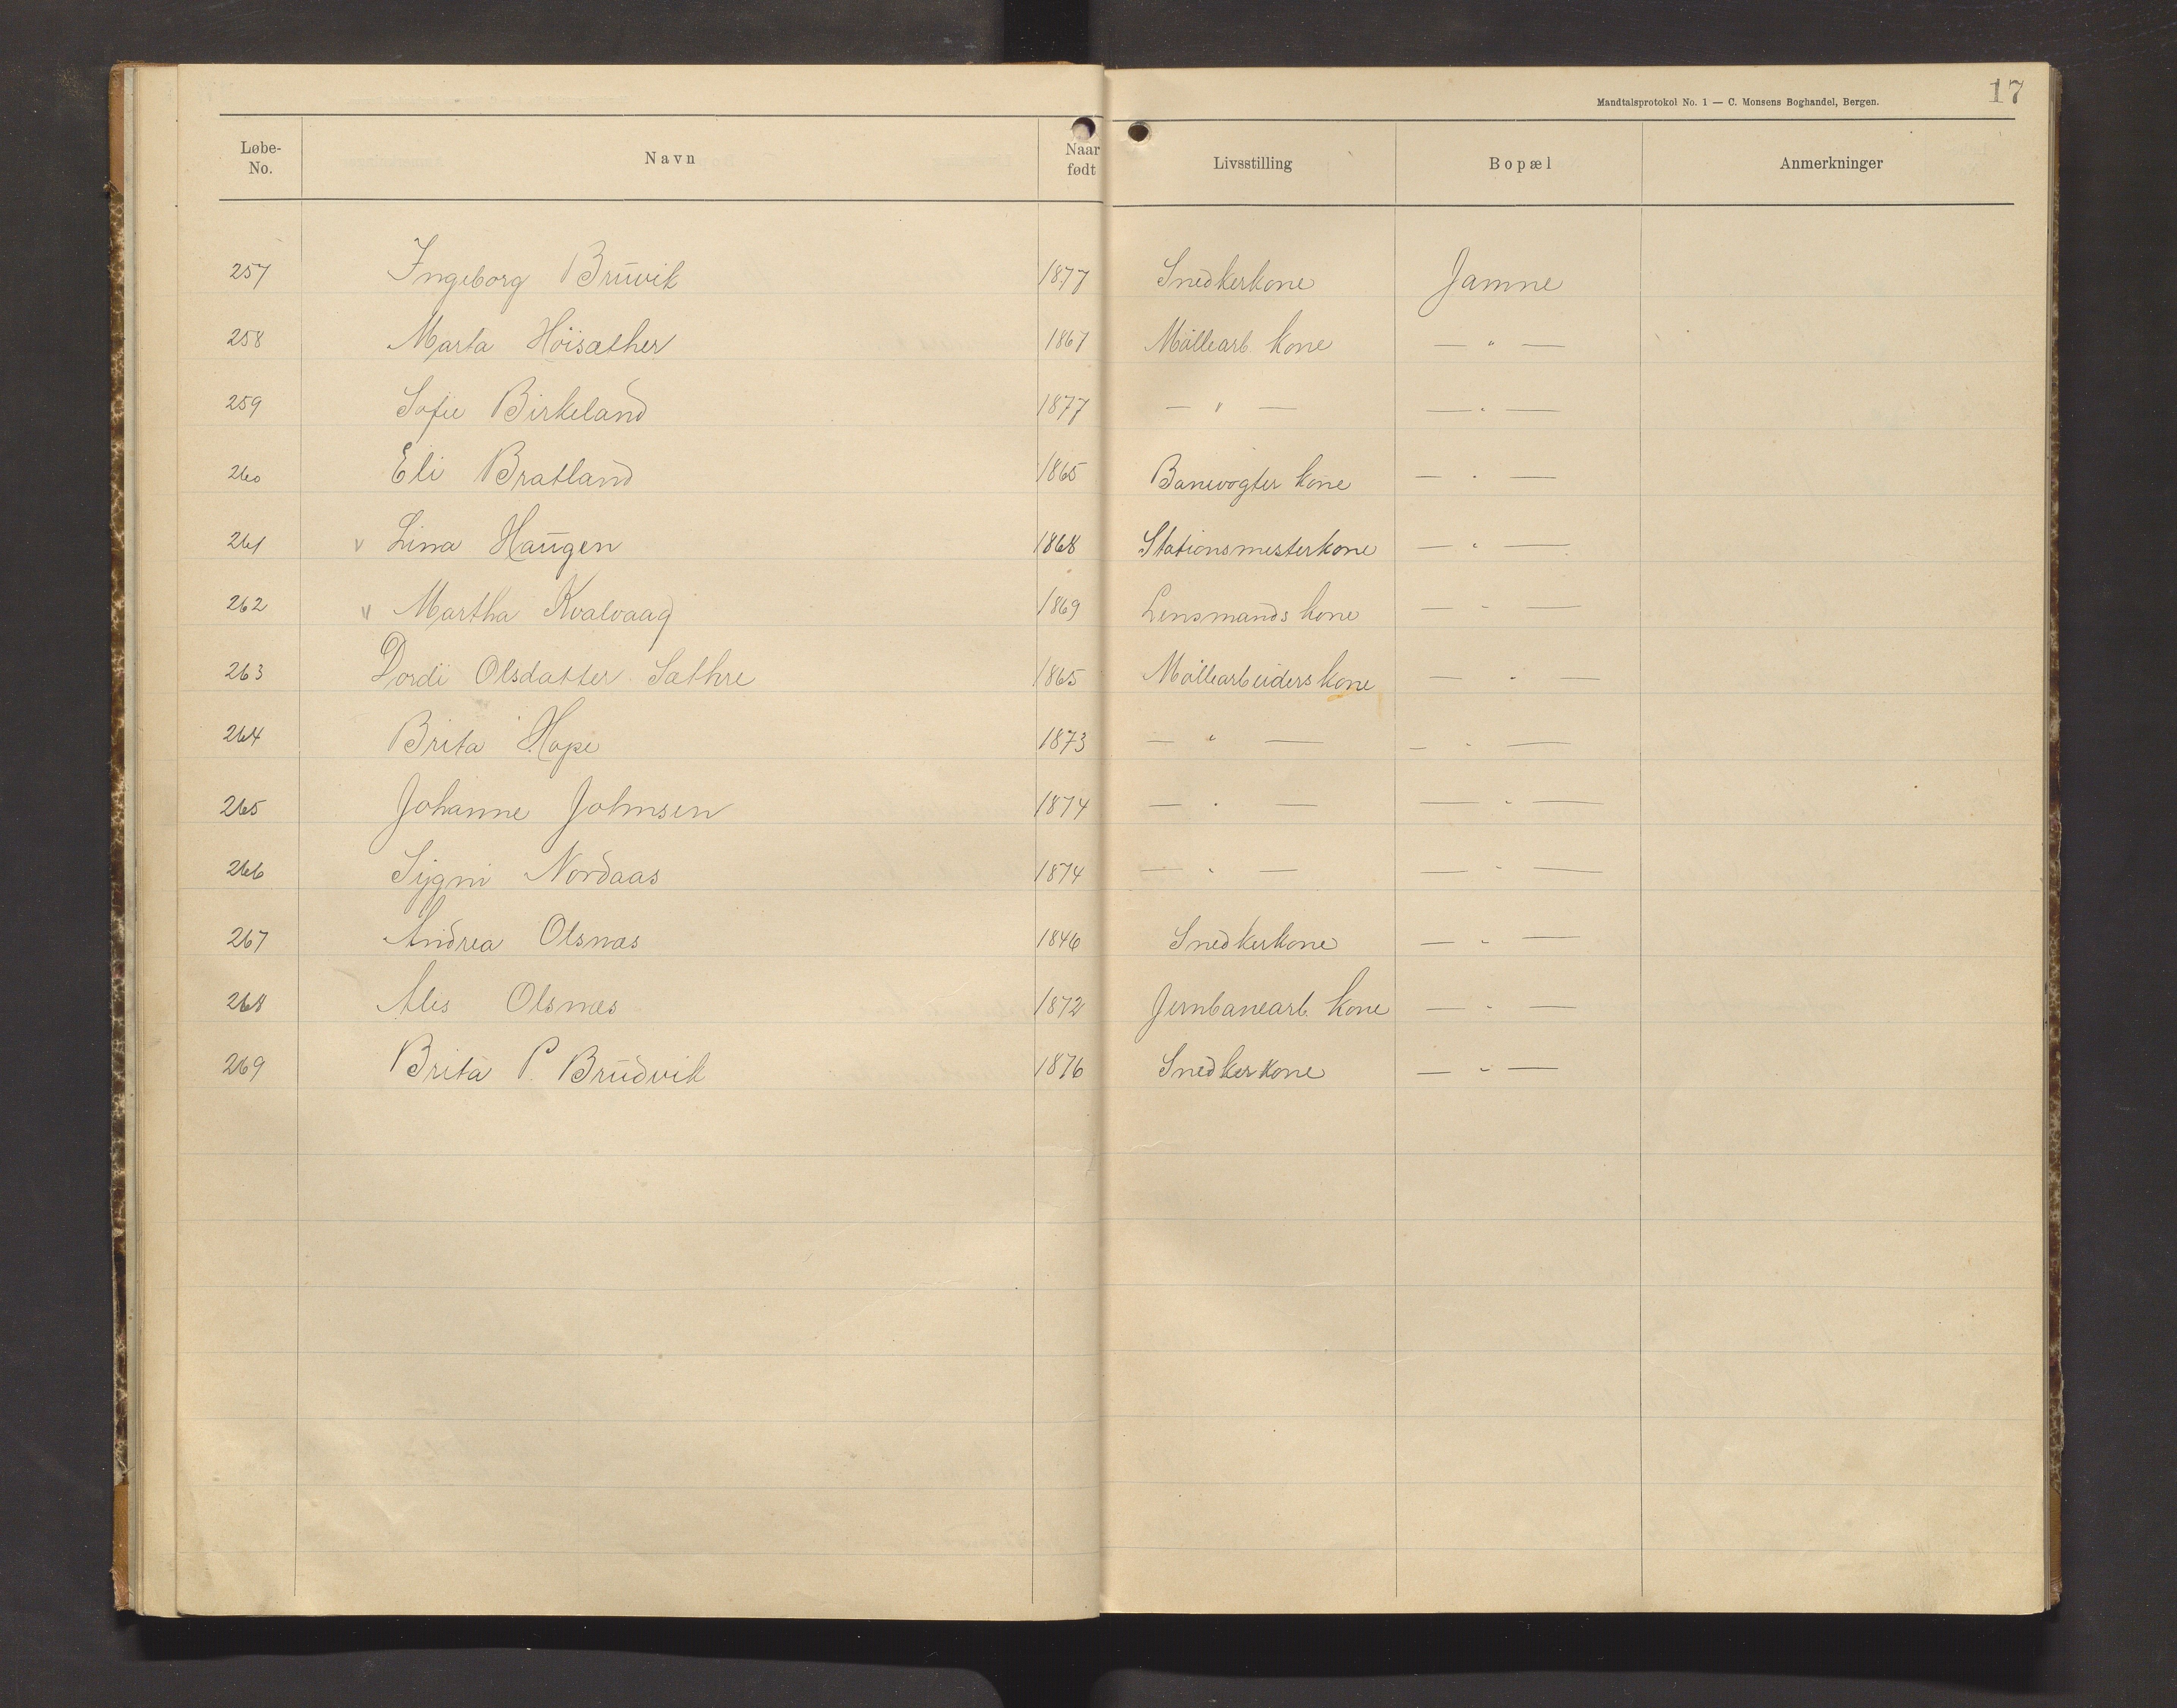 17
Mandtalsprotokol No. 1 — C. Monsens Boghandel, Bergen.
Løbe-No. Navn Naar født Livsstilling Bopæl Anmerkninger
257 Ingeborg Bruvik 1877 Snedkerkone Jamne
258 Marta Høisæther 1867 Møllearb. kone — " —
259 Sofie Birkeland 1877 — " — — " —
260 Eli Bratland 1865 Banevogter kone — " —
261 v Lina Haugen 1868 Stationsmesterkone — " —
262 v Martha Kvalvaag 1869 Lensmands kone — " —
263 Dordi Olsdatter Sæthre 1865 Møllearbeiders kone — " —
264 Brita Hope 1873 — " — — " —
265 Johanne Johnsen 1874 — " — — " —
266 Sygni Nordaas 1874 — " — — " —
267 Andrea Olsnæs 1846 Snedkerkone — " —
268 Ales Olsnæs 1872 Jernbanearb. kone — " —
269 Brita P. Brudvik 1876 Snedkerkone — " —